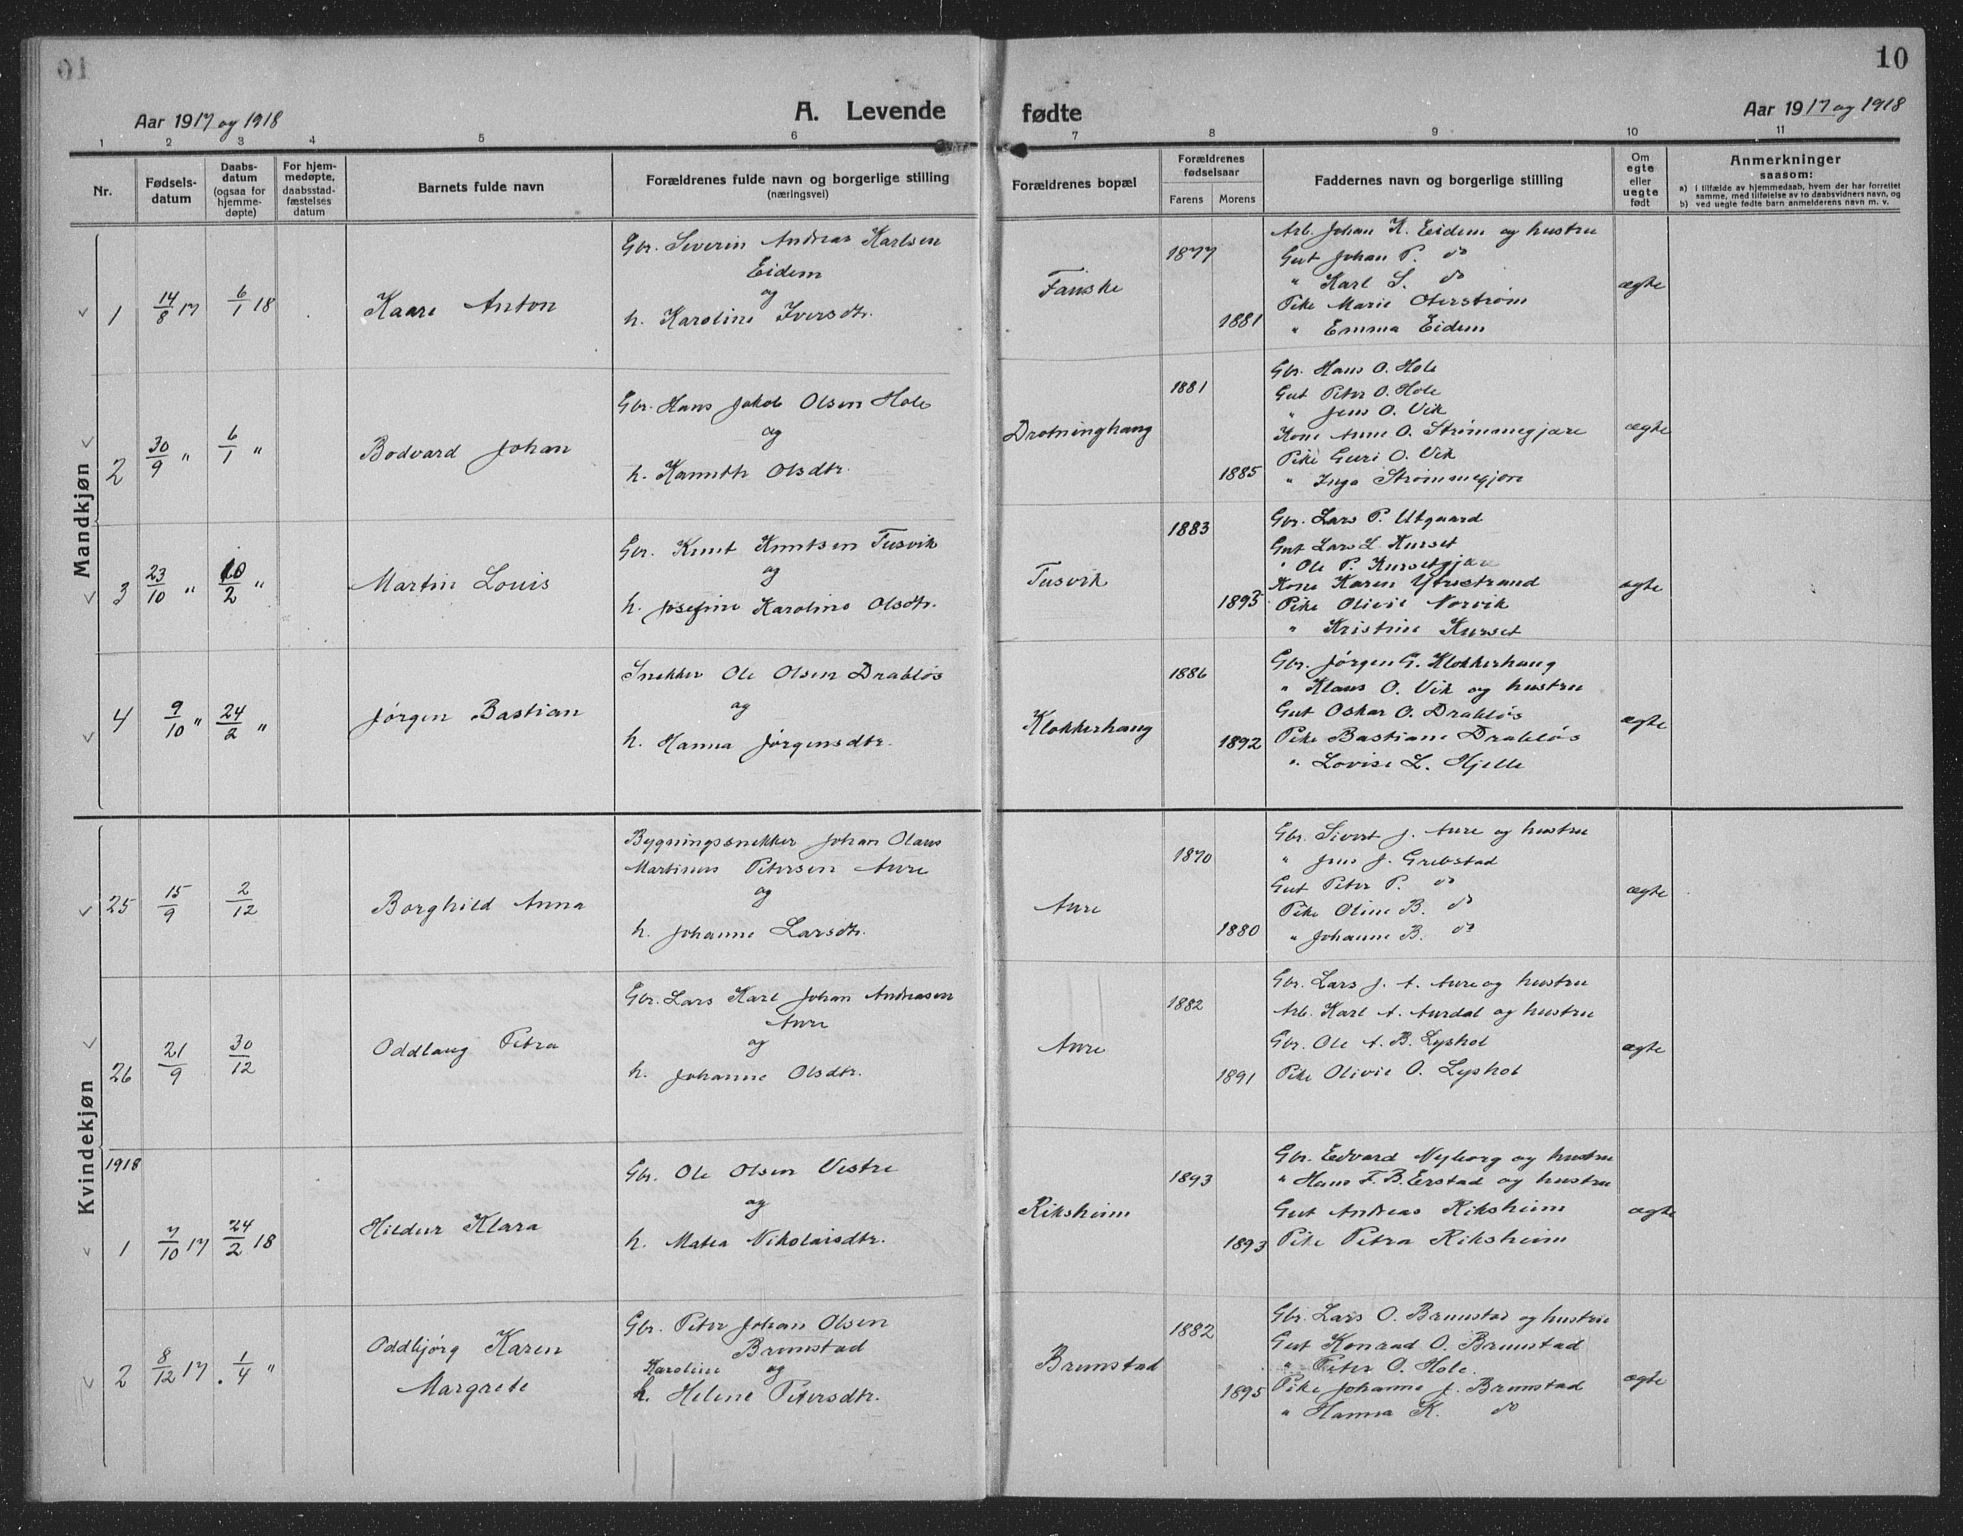 10
Aar 1917 og 1918
A. Levende fødte
Aar 1917 og 1918
1 2 3 4 5 6 7 8 9 10 11
Nr.
Fødsels-
datum
Daabs-
datum
(ogsaa for
hjemme-
døpte)
For hjem-
medøpte,
daabsstad-
fæstelses
datum
Barnets fulde navn
Forældrenes fulde navn og borgerlige stilling
(næringsvei)
Forældrenes bopæl
Forældrenes
fødselsaar
Farens Morens
Faddernes navn og borgerlige stilling
Om
egte
eller
uegte
født
Anmerkninger
saasom:
a) i tilfælde av hjemmedaab, hvem der har forrettet
samme, med tilføielse av to daabsvidners navn, og
b) ved uegte fødte barn anmelderens navn m. v.
Mandkjøn
1 14/8 17 6/1 18 Kaare Anton
Gbr. Severin Andreas Karlsen
Eidem
og
h. Karoline Iversdtr.
Fauske
1877
1881
Arb. Johan K. Eidem og hustru
Gut Johan P. do
" Karl S. do
Pike Marie Oterstrøm
" Emma Eidem
ægte
2 30/9 " 6/1 " Bodvard Johan
Gbr. Hans Jakob Olsen Hole
og
h. Olsdtr.
Drotninghaug
1881
1885
Gbr. Hans O. Hole
Gut Peter O. Hole
" Jens O. Vik
Kone Anne O. Strømmegjære
Pike Guri O. Vik
" Inga Strømmegjøre
ægte
3 23/10 " 10/2 " Martin Louis
Gbr. Knut Knutsen Tusvik
og
h. Josefine Karoline Olsdtr.
Tusvik
1883
1895
Gbr. Lars P. Utgaard
Gut Lars L. Kurset
" Ole P. Kursetgjære
Kone Karen Ytrestrand
Pike Olivie Norvik
" Kristine Kurset
ægte
4 9/10 " 24/2 " Jørgen Bastian
Snekker Ole Olsen Drabløs
og
h. Hanna Jørgensdtr.
Klokkerhaug
1886
1892
Gbr. Jørgen G. Klokkerhaug
" Klaus O. Vik og hustru
Gut Oskar O. Drabløs
Pike Bastiane Drabløs
" Lovise L. Hjelle
ægte
Kvindekjøn
25 15/9 2/12 Borghild Anna
Bygningssnekker Johan Olaus
Martinus Petersen Aure
og
h. Johanne Larsdtr.
Aure
1870
1880
Gbr. Sivert J. Aure og hustru
" Jens J. Grebstad
Gut Peter P. do
Pike Oline B. do
" Johanne B. do
ægte
26 21/9 30/12 Oddlaug Petra
Gbr. Lars Karl Johan Andreasen
Aure
og
h. Johanne Olsdtr.
Aure
1882
1891
Gbr. Lars J. A. Aure og hustru
Arb. Karl A. Aurdal og hustru
Gbr. Ole A. B. Lyshol
Pike Olivie O. Lyshol
ægte
1918
1 7/10 17 24/2 18 Hildur Klara
Gbr. Ole Olsen Vestre
og
h. Matea Nikolaisdtr.
Riksheim
1893
1893
Gbr. Edvard Nyborg og hustru
" Hans F. B. Erstad og hustru
Gut Andreas Riksheim
Pike Petra Riksheim
ægte
2 8/12 17 1/4 " Oddbjørg Karen
Margrete
Gbr. Peter Johan Olsen
Brunstad
Karoline og
h. Helene Petersdtr.
Brunstad
1882
1895
Gbr. Lars O. Brunstad og hustru
Gut Konrad O. Brunstad
" Peter O. Hole
Pike Johanne J. Brunstad
" Hanna K. do
ægte